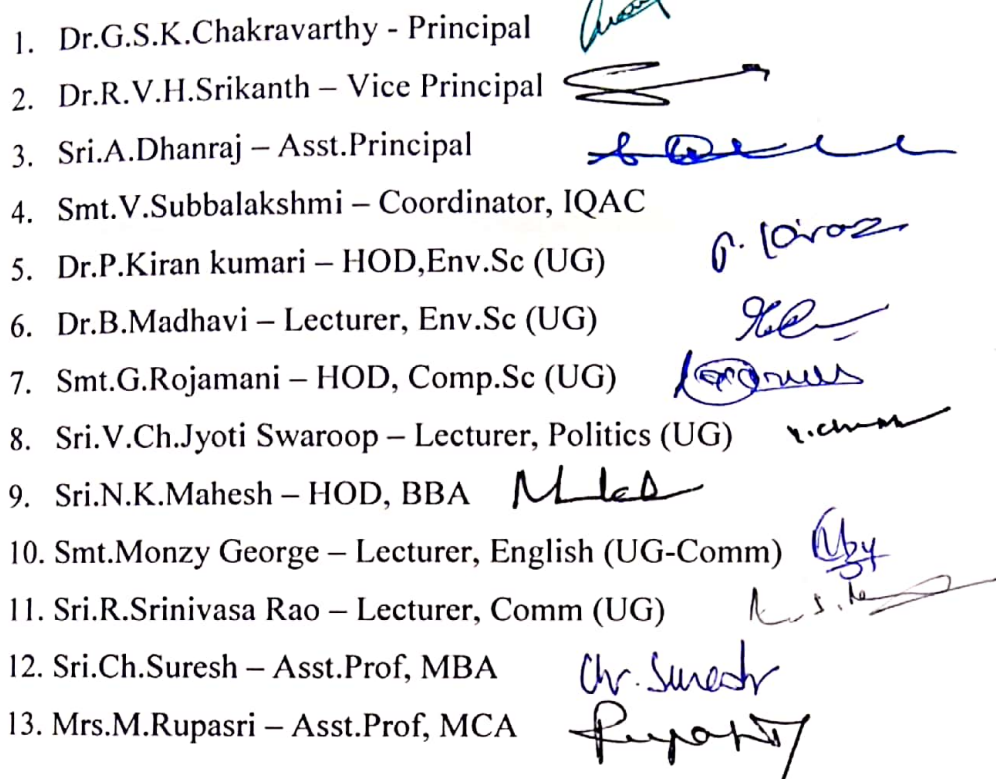 1. Dr.G.S.K.Chakravarthy - Principal
2. Dr.R.V.H.Srikanth – Vice Principal
3. Sri.A.Dhanraj – Asst.Principal
4. Smt.V.Subbalakshmi – Coordinator, IQAC
5. Dr.P.Kiran kumari – HOD,Env.Sc (UG) P. Kiran
6. Dr.B.Madhavi – Lecturer, Env.Sc (UG)
7. Smt.G.Rojamani – HOD, Comp.Sc (UG)
8. Sri.V.Ch.Jyoti Swaroop – Lecturer, Politics (UG)
9. Sri.N.K.Mahesh – HOD, BBA
10. Smt.Monzy George – Lecturer, English (UG-Comm)
11. Sri.R.Srinivasa Rao – Lecturer, Comm (UG)
12. Sri.Ch.Suresh – Asst.Prof, MBA Ch. Suresh
13. Mrs.M.Rupasri – Asst.Prof, MCA